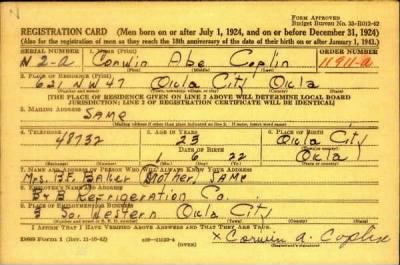 Form Approved
Budget Bureau No. 33-R012-42
REGISTRATION CARD (Men born on or after July 1, 1924, and on or before December 31, 1924)
(Also for the registration of men as they reach the 18th anniversary of the date of their birth on or after January 1, 1943.)
SERIAL NUMBER 1. NAME (Print) ORDER NUMBER
N 2-a Corwin Abe Coplin 11911-a
2. PLACE OF RESIDENCE (Print)
631 N W 47 Okla City Okla
[THE PLACE OF RESIDENCE GIVEN ON LINE 2 ABOVE WILL DETERMINE LOCAL BOARD
JURISDICTION; LINE 2 OF REGISTRATION CERTIFICATE WILL BE IDENTICAL]
3. MAILING ADDRESS
SAME
4. TELEPHONE 5. AGE IN YEARS 6. PLACE OF BIRTH
48732 23 Okla City
DATE OF BIRTH
1 6 22 Okla
7. NAME AND ADDRESS OF PERSON WHO WILL ALWAYS KNOW YOUR ADDRESS
Mrs. Baker (Mother) SAME
8. EMPLOYER'S NAME AND ADDRESS
B & B Refrigeration Co.
9. PLACE OF EMPLOYMENT OR BUSINESS
3 So. Western Okla City
I AFFIRM THAT I HAVE VERIFIED ABOVE ANSWERS AND THAT THEY ARE TRUE.
DSS Form 1 (Rev. 11-16-42) (OVER) x Corwin A. Coplin